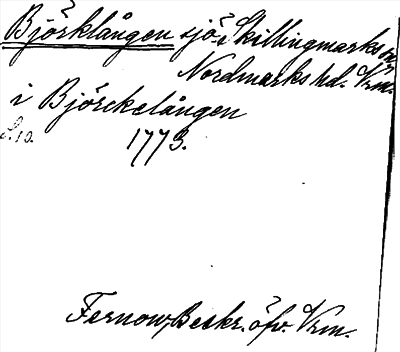 Björklången sjö i Skillingmarks sn
Nordmarks hd. Vrm.
i Björckelången
S. 10. 1773.
Fernow, Beskr. öfv. Vrm.